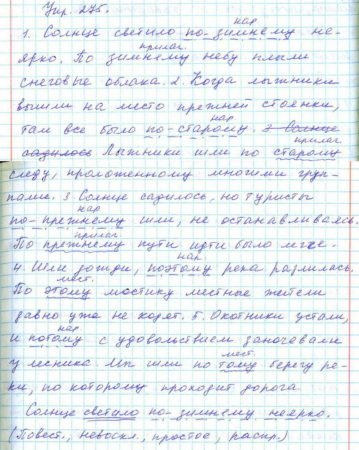 Упр. 275.
нар
1. Солнце светило по-зимнему не-
прилаг.
ярко. По зимнему небу плыли
снеговые облака. 2. Когда лыжники
вышли на место прежней стоянки,
нар
там все было по-старому. 3 Солнце
прилаг.
садилось Лыжники шли по старому
следу, проложенному многими груп-
пами. 3 Солнце садилось, но туристы
нар
по-прежнему шли, не останавливаясь.
прилаг.
По прежнему пути идти было легче.
нар.
4. Шли дожди, поэтому река разлилась.
мест.
По этому мостику местные жители
давно уже не ходят. 5. Охотники устали,
нар
и потому с удовольствием заночевали
мест.
у лесника. Мы шли по тому берегу ре-
ки, по которому проходит дорога.
Солнце светило по-зимнему неярко.
(Повест., невоскл., простое, распр.)